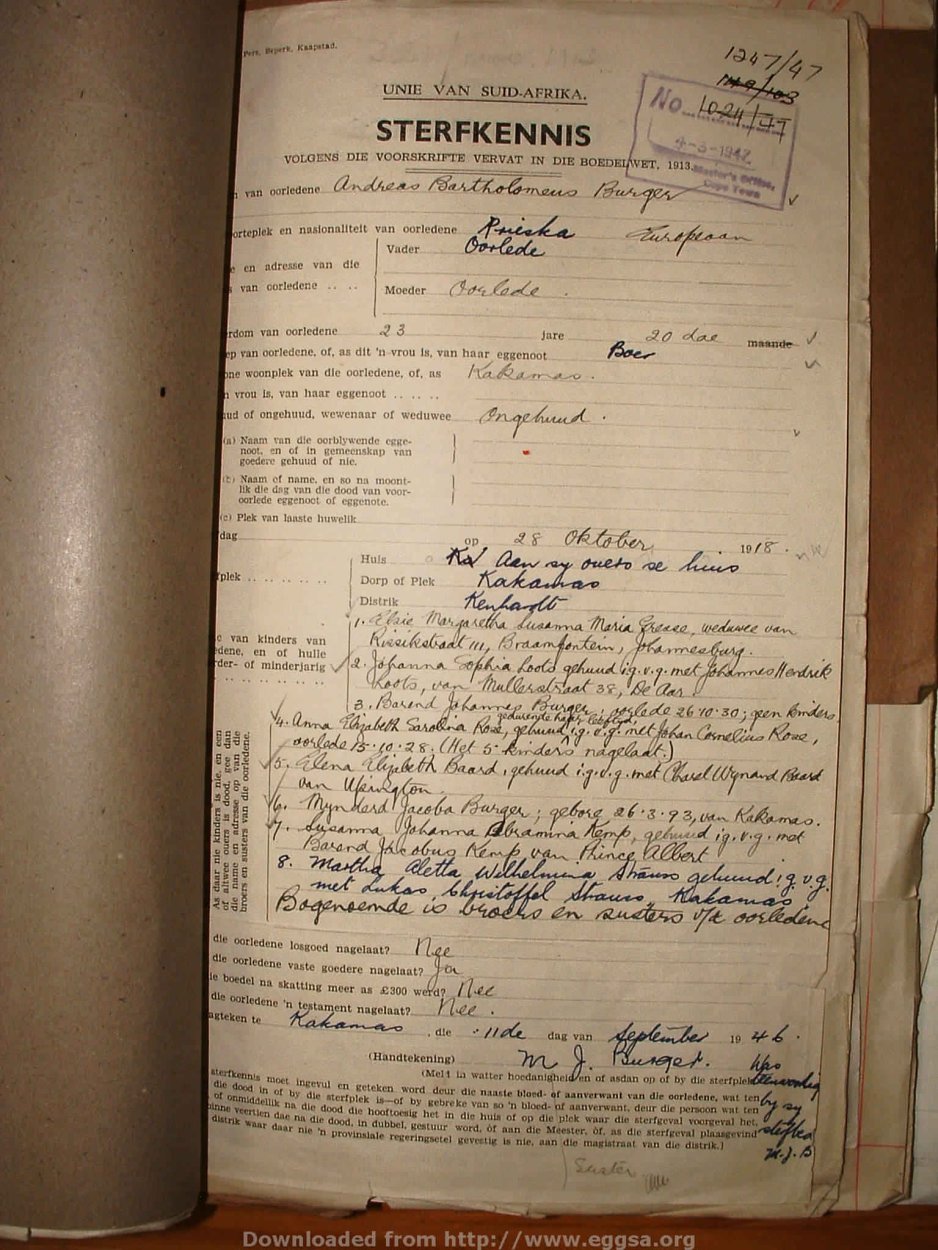 Pers, Beperk, Kaapstad.
1247/47
No. 1024/47
4-3-1947
Master's Office,
Cape Town
UNIE VAN SUID-AFRIKA.
STERFKENNIS
VOLGENS DIE VOORSKRIFTE VERVAT IN DIE BOEDELWET, 1913.
van oorledene Andreas Bartholomeus Burger
orteplek en nasionaliteit van oorledene Prieska Europeaan
Vader Oorlede
e en adresse van die
s van oorledene .. ..
Moeder Oorlede.
erdom van oorledene 23 jare 20 dae maande
ep van oorledene, of, as dit 'n vrou is, van haar eggenoot Boer
one woonplek van die oorledene, of, as Kakamas.
n vrou is, van haar eggenoot .. .. ..
ud of ongehuud, wewenaar of weduwee Ongehuud.
(a) Naam van die oorblywende egge-
noot, en of in gemeenskap van
goedere gehuud of nie.
(b) Naam of name, en so na moont-
lik die dag van die dood van voor-
oorlede eggenoot of eggenote.
(c) Plek van laaste huwelik
dag op 28 Oktober 1918.
Huis Aan sy ouers se huis
fplek .. .. .. .. .. Dorp of Plek Kakamas
Distrik Kenhardt
1. Elsie Margaretha Susanna Maria Grease, weduwee van
Rissikstraat 111, Braamfontein, Johannesburg.
e van kinders van
edene, en of hulle
rder- of minderjarig
2. Johanna Sophia Loots gehuud i.g.v.g. met Johannes Hendrik
Loots, van Mullerstraat 38, De Aar.
3. Barend Johannes Burger; oorlede 26.10.30; geen kinders
gedurende haar leeftyd
4. Anna Elizabeth Sarolina Rose, gehuud i.g.v.g. met Johan Cornelius Rose,
oorlede 15.10.28. (Het 5 kinders nagelaat.)
5. Elena Elizabeth Baard, gehuud i.g.v.g. met Charel Wynand Baard
van Upington.
6. Mynderd Jacoba Burger; gebore 26.3.93, van Kakamas.
7. Susanna Johanna Abramina Kemp, gehuud i.g.v.g. met
Barend Jacobus Kemp van Prince Albert
8. Martha Aletta Wilhelmina Strauss gehuud i.g.v.g.
met Lukas Christoffel Strauss, Kakamas.
Bogenoemde is broers en susters v/d oorledene
As daar nie kinders is nie, en een
of altwee ouers is dood, gee dan
die name en adresse op van die
broers en susters van die oorledene.
die oorledene losgoed nagelaat? Nee
die oorledene vaste goedere nagelaat? Ja
ie boedel na skatting meer as £300 werd? Nee
die oorledene 'n testament nagelaat? Nee.
agteken te Kakamas, die 11de dag van September 1946.
(Handtekening) M J. Burger.
(Meld in watter hoedanigheid en of asdan op of by die sterfplek
Was teenwoordig
by sy
sterfbed
M.J.B
sterfkennis moet ingevul en geteken word deur die naaste bloed- of aanverwant van die oorledene, wat ten
die dood in of by die sterfplek is—of by gebreke van so 'n bloed- of aanverwant, deur die persoon wat ten
of onmiddellik na die dood die hooftoesig het in die huis of op die plek waar die sterfgeval voorgeval het,
binne veertien dae na die dood, in dubbel, gestuur word, óf aan die Meester, óf, as die sterfgeval plaasgevind
distrik waar daar nie 'n provinsiale regeringsetel gevestig is nie, aan die magistraat van die distrik.]
Suster
Downloaded from http://www.eggsa.org